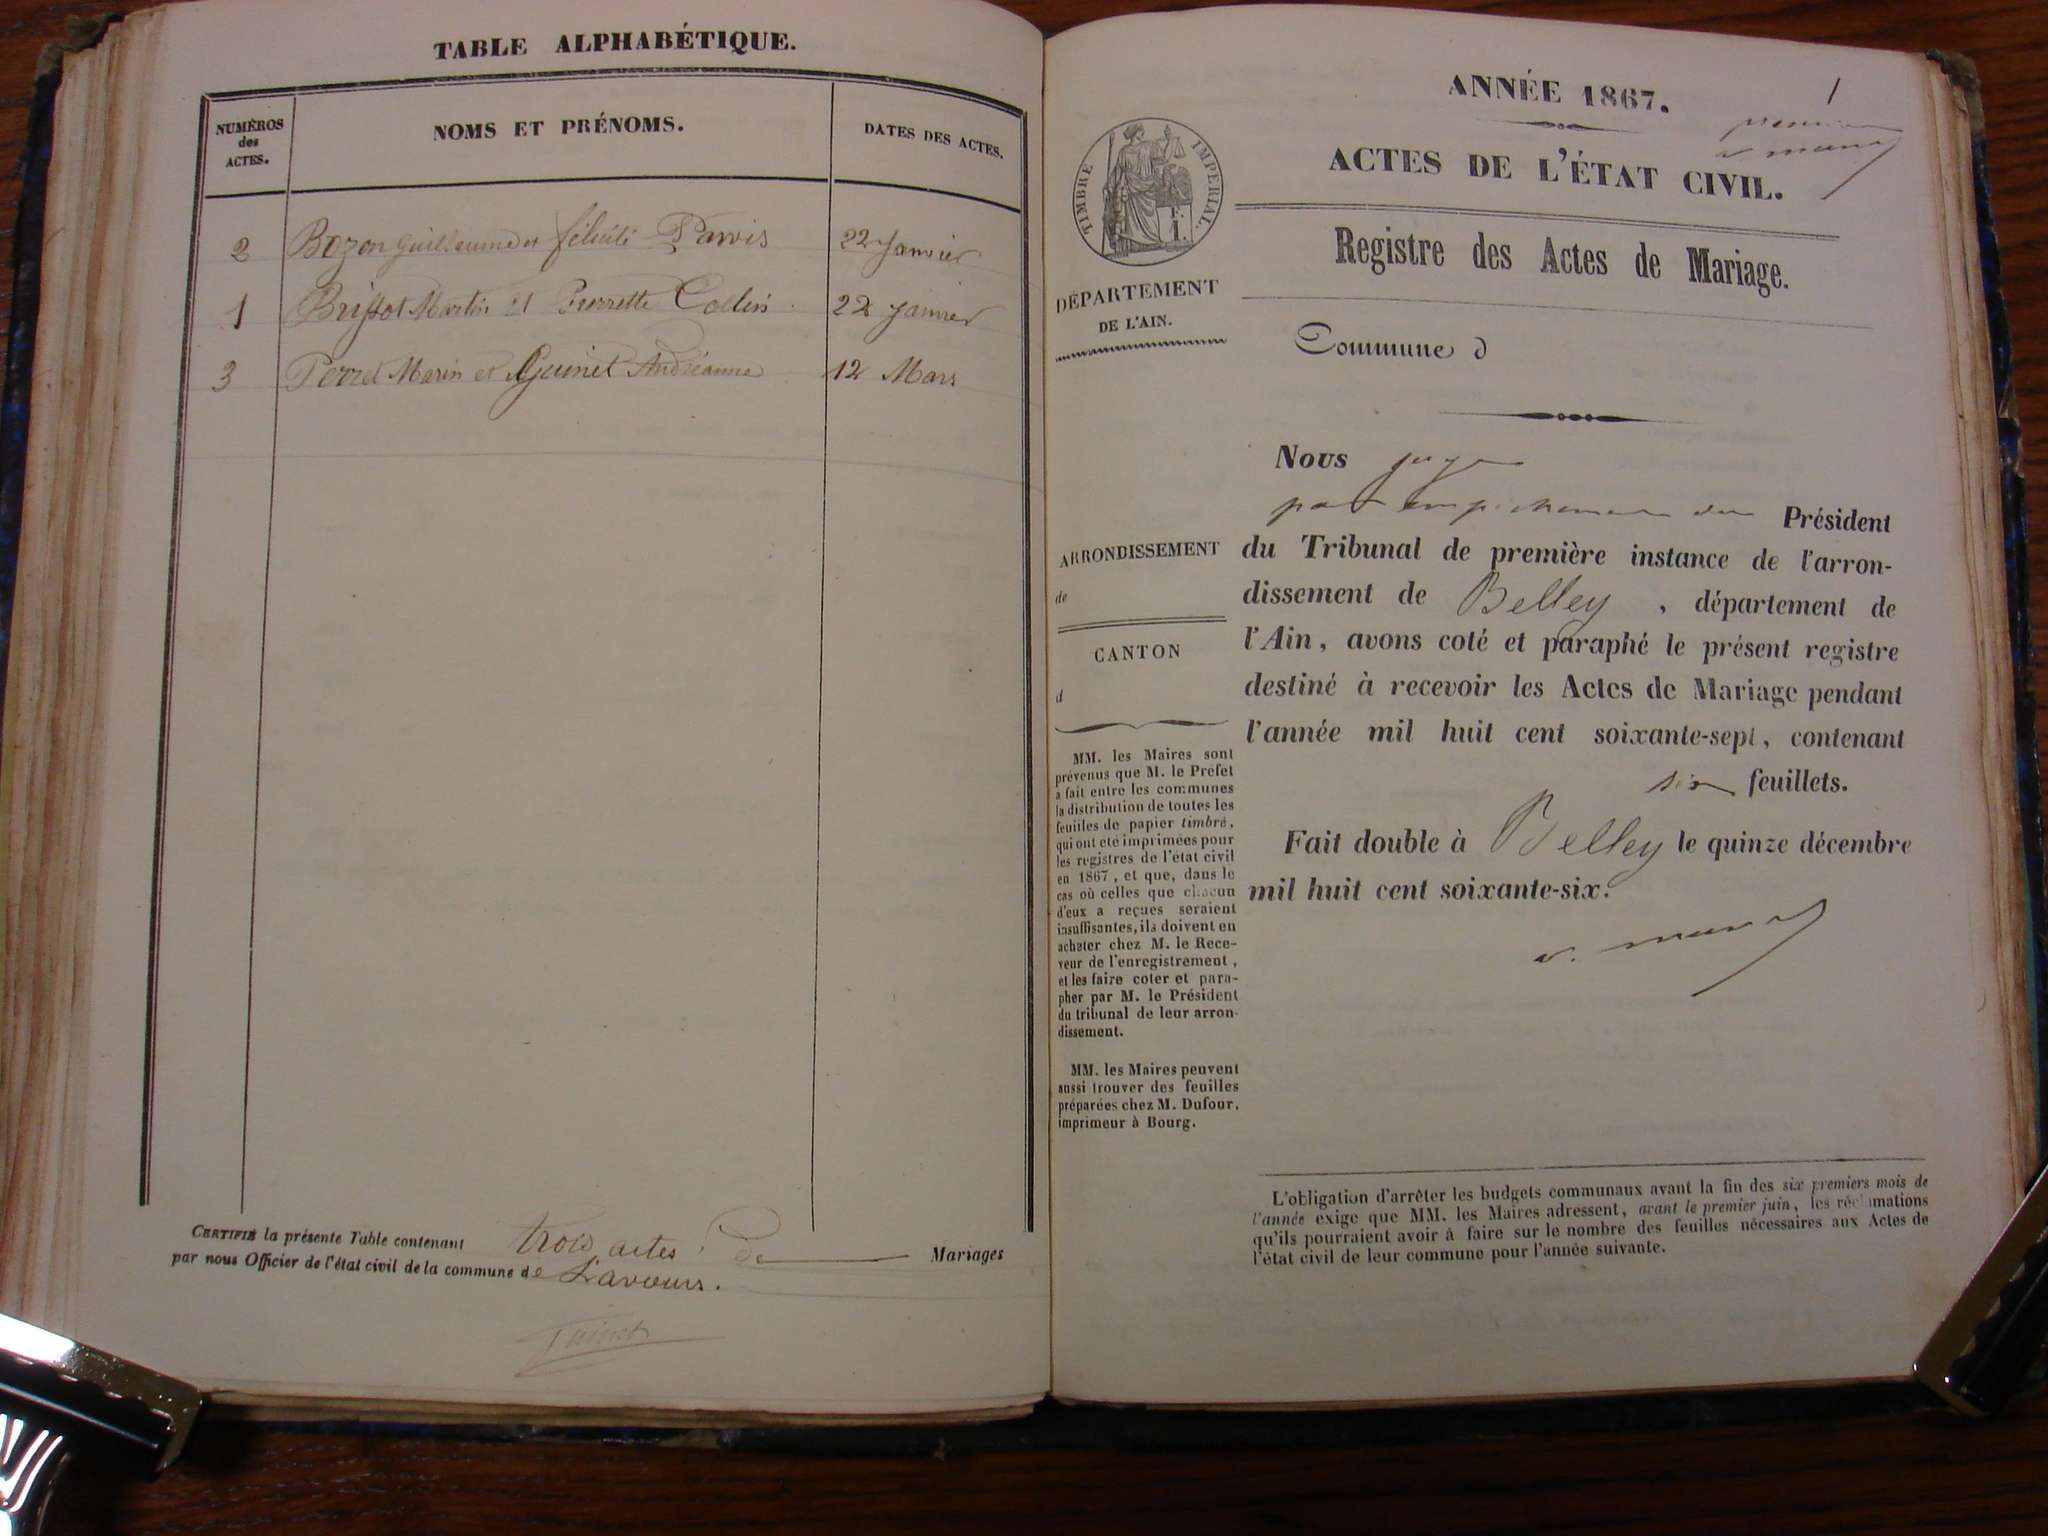 TABLE ALPHABÉTIQUE.
NUMÉROS
des
ACTES.
NOMS ET PRÉNOMS.
DATES DES ACTES.
2 Bozon Guillaume et félicité Parvis 22 Janvier
1 Brissot Martin et Pierrette Collin 22 Janvier
3 Perret Marin et Guinet Andréanne 12 Mars
CERTIFIÉ la présente Table contenant trois actes De Mariages
par nous Officier de l'état civil de la commune de Lavours.
ANNÉE 1867.
1
premier
ACTES DE L'ÉTAT CIVIL.
TIMBRE IMPÉRIAL.
Registre des Actes de Mariage.
DÉPARTEMENT
DE L'AIN.
Commune d
Nous juge
par empêchement du Président
du Tribunal de première instance de l'arron-
dissement de Belley, département de
l'Ain, avons coté et paraphé le présent registre
destiné à recevoir les Actes de Mariage pendant
l'année mil huit cent soixante-sept, contenant
six feuillets.
Fait double à Belley le quinze décembre
mil huit cent soixante-six.
ARRONDISSEMENT
de
CANTON
d
MM. les Maires sont
prévenus que M. le Préfet
a fait entre les communes
la distribution de toutes les
feuilles de papier timbré,
qui ont été imprimées pour
les registres de l'état civil
en 1867, et que, dans le
cas où celles que chacun
d'eux a reçues seraient
insuffisantes, ils doivent en
acheter chez M. le Rece-
veur de l'enregistrement,
et les faire coter et para-
pher par M. le Président
du tribunal de leur arron-
dissement.
MM. les Maires peuvent
aussi trouver des feuilles
préparées chez M. Dufour,
imprimeur à Bourg.
L'obligation d'arrêter les budgets communaux avant la fin des six premiers mois de
l'année exige que MM. les Maires adressent, avant le premier juin, les réclamations
qu'ils pourraient avoir à faire sur le nombre des feuilles nécessaires aux Actes de
l'état civil de leur commune pour l'année suivante.